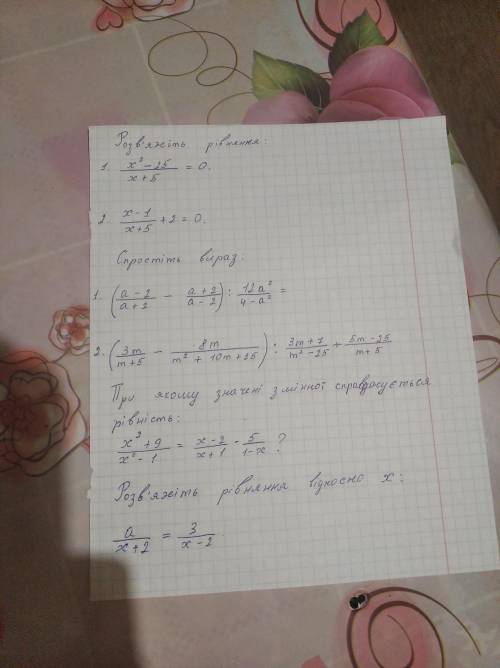 Розв'яжіть рівняння:
1. (x² - 25)/(x + 5) = 0.
2. (x - 1)/(x + 5) + 2 = 0.
Спростіть вираз:
1. ((a - 2)/(a + 2) - (a + 2)/(a - 2)) : 12a²/(4 - a²) =
2. (3m/(m + 5) - 8m/(m² + 10m + 25)) : (3m + 7)/(m² - 25) + (5m - 25)/(m + 5)
При якому значені змінної справджується
рівність:
(x² + 9)/(x² - 1) = (x - 2)/(x + 1) - 5/(1 - x) ?
Розв'яжіть рівняння відносно x:
a/(x + 2) = 3/(x - 2)